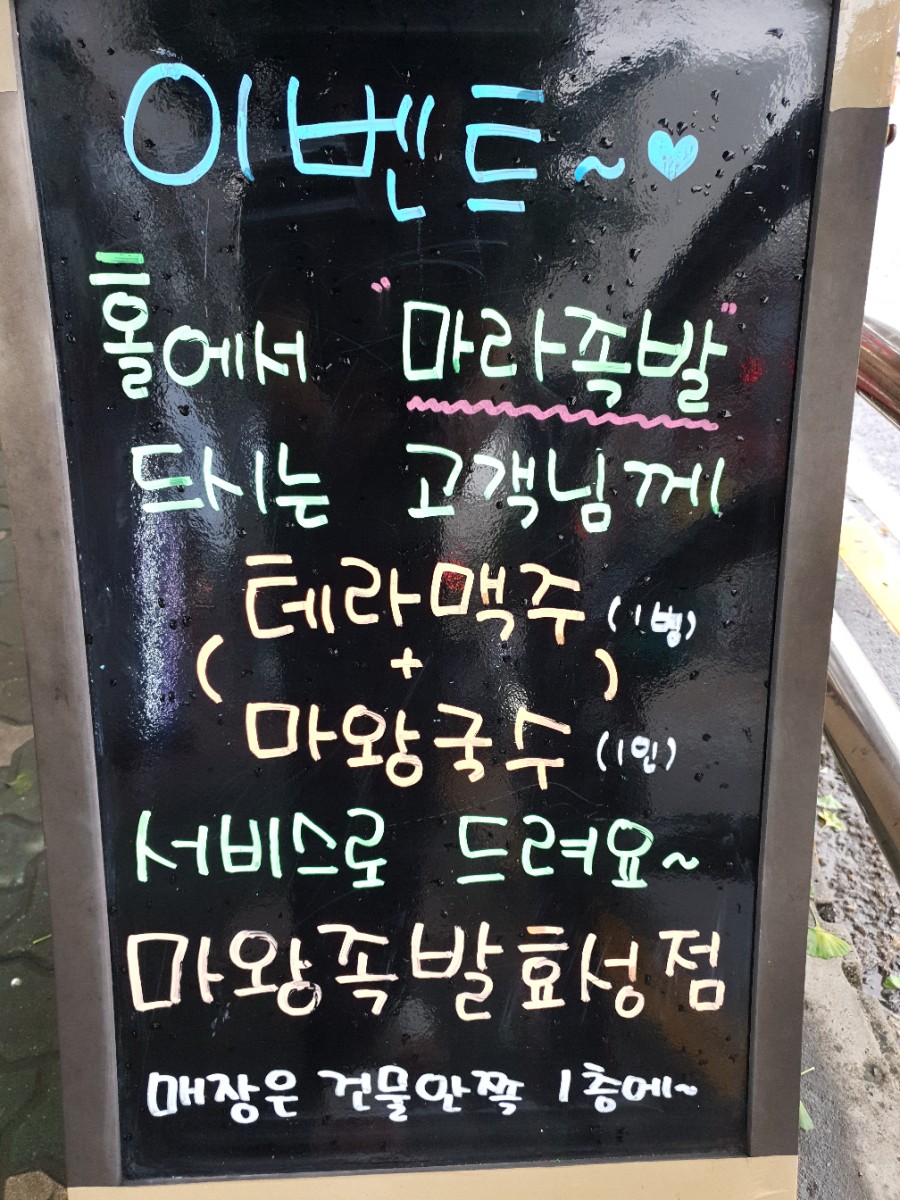 이벤트~♥
홀에서 "마라족발"
드시는 고객님께
(테라맥주 (1병)
+
마왕국수) (1인)
서비스로 드려요~
마왕족발효성점
매장은 건물안쪽 1층에~